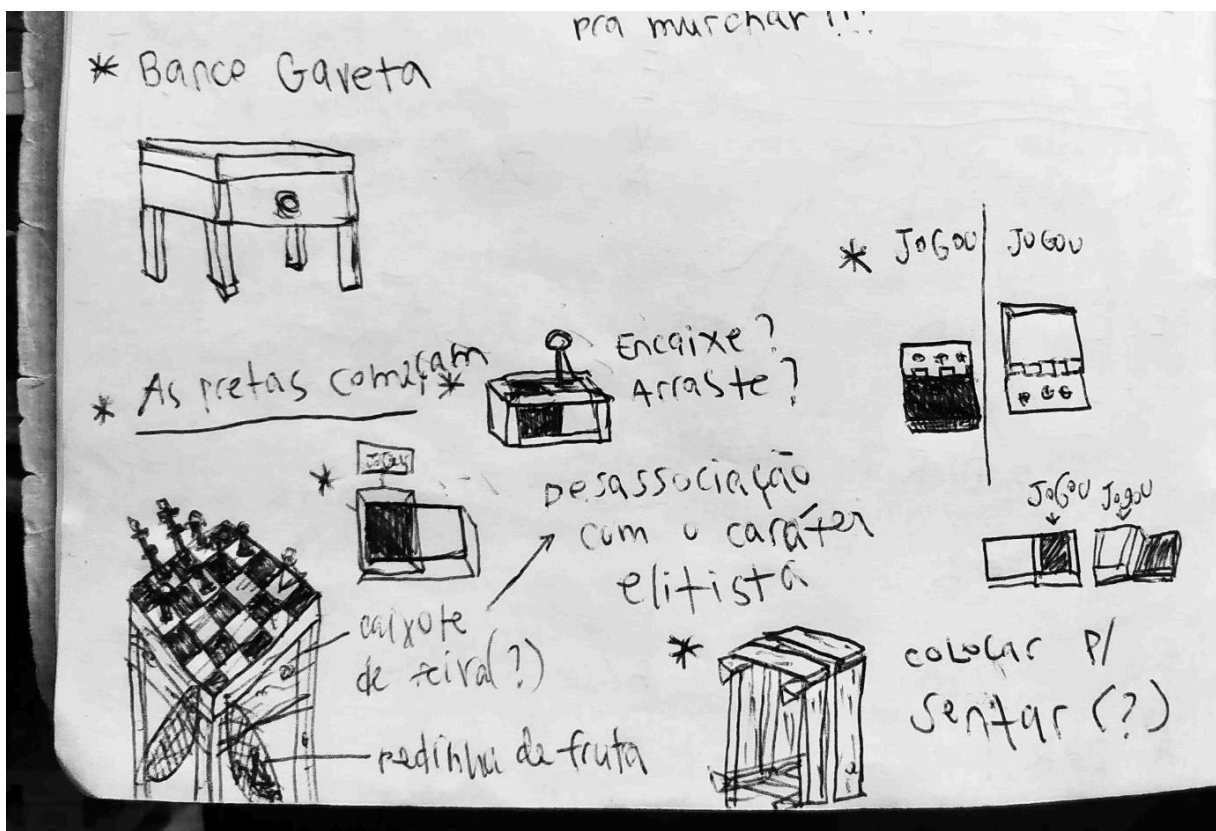 pra murchar!!!
* Banco Gaveta
* JOGOU JOGOU
* As pretas começam
* Encaixe?
Arraste?
* JOGOU
Desassociação
com o caráter
elitista
JOGOU JOGOU
caixote
de feira(?)
redinha de fruta
* colocar p/
sentar (?)